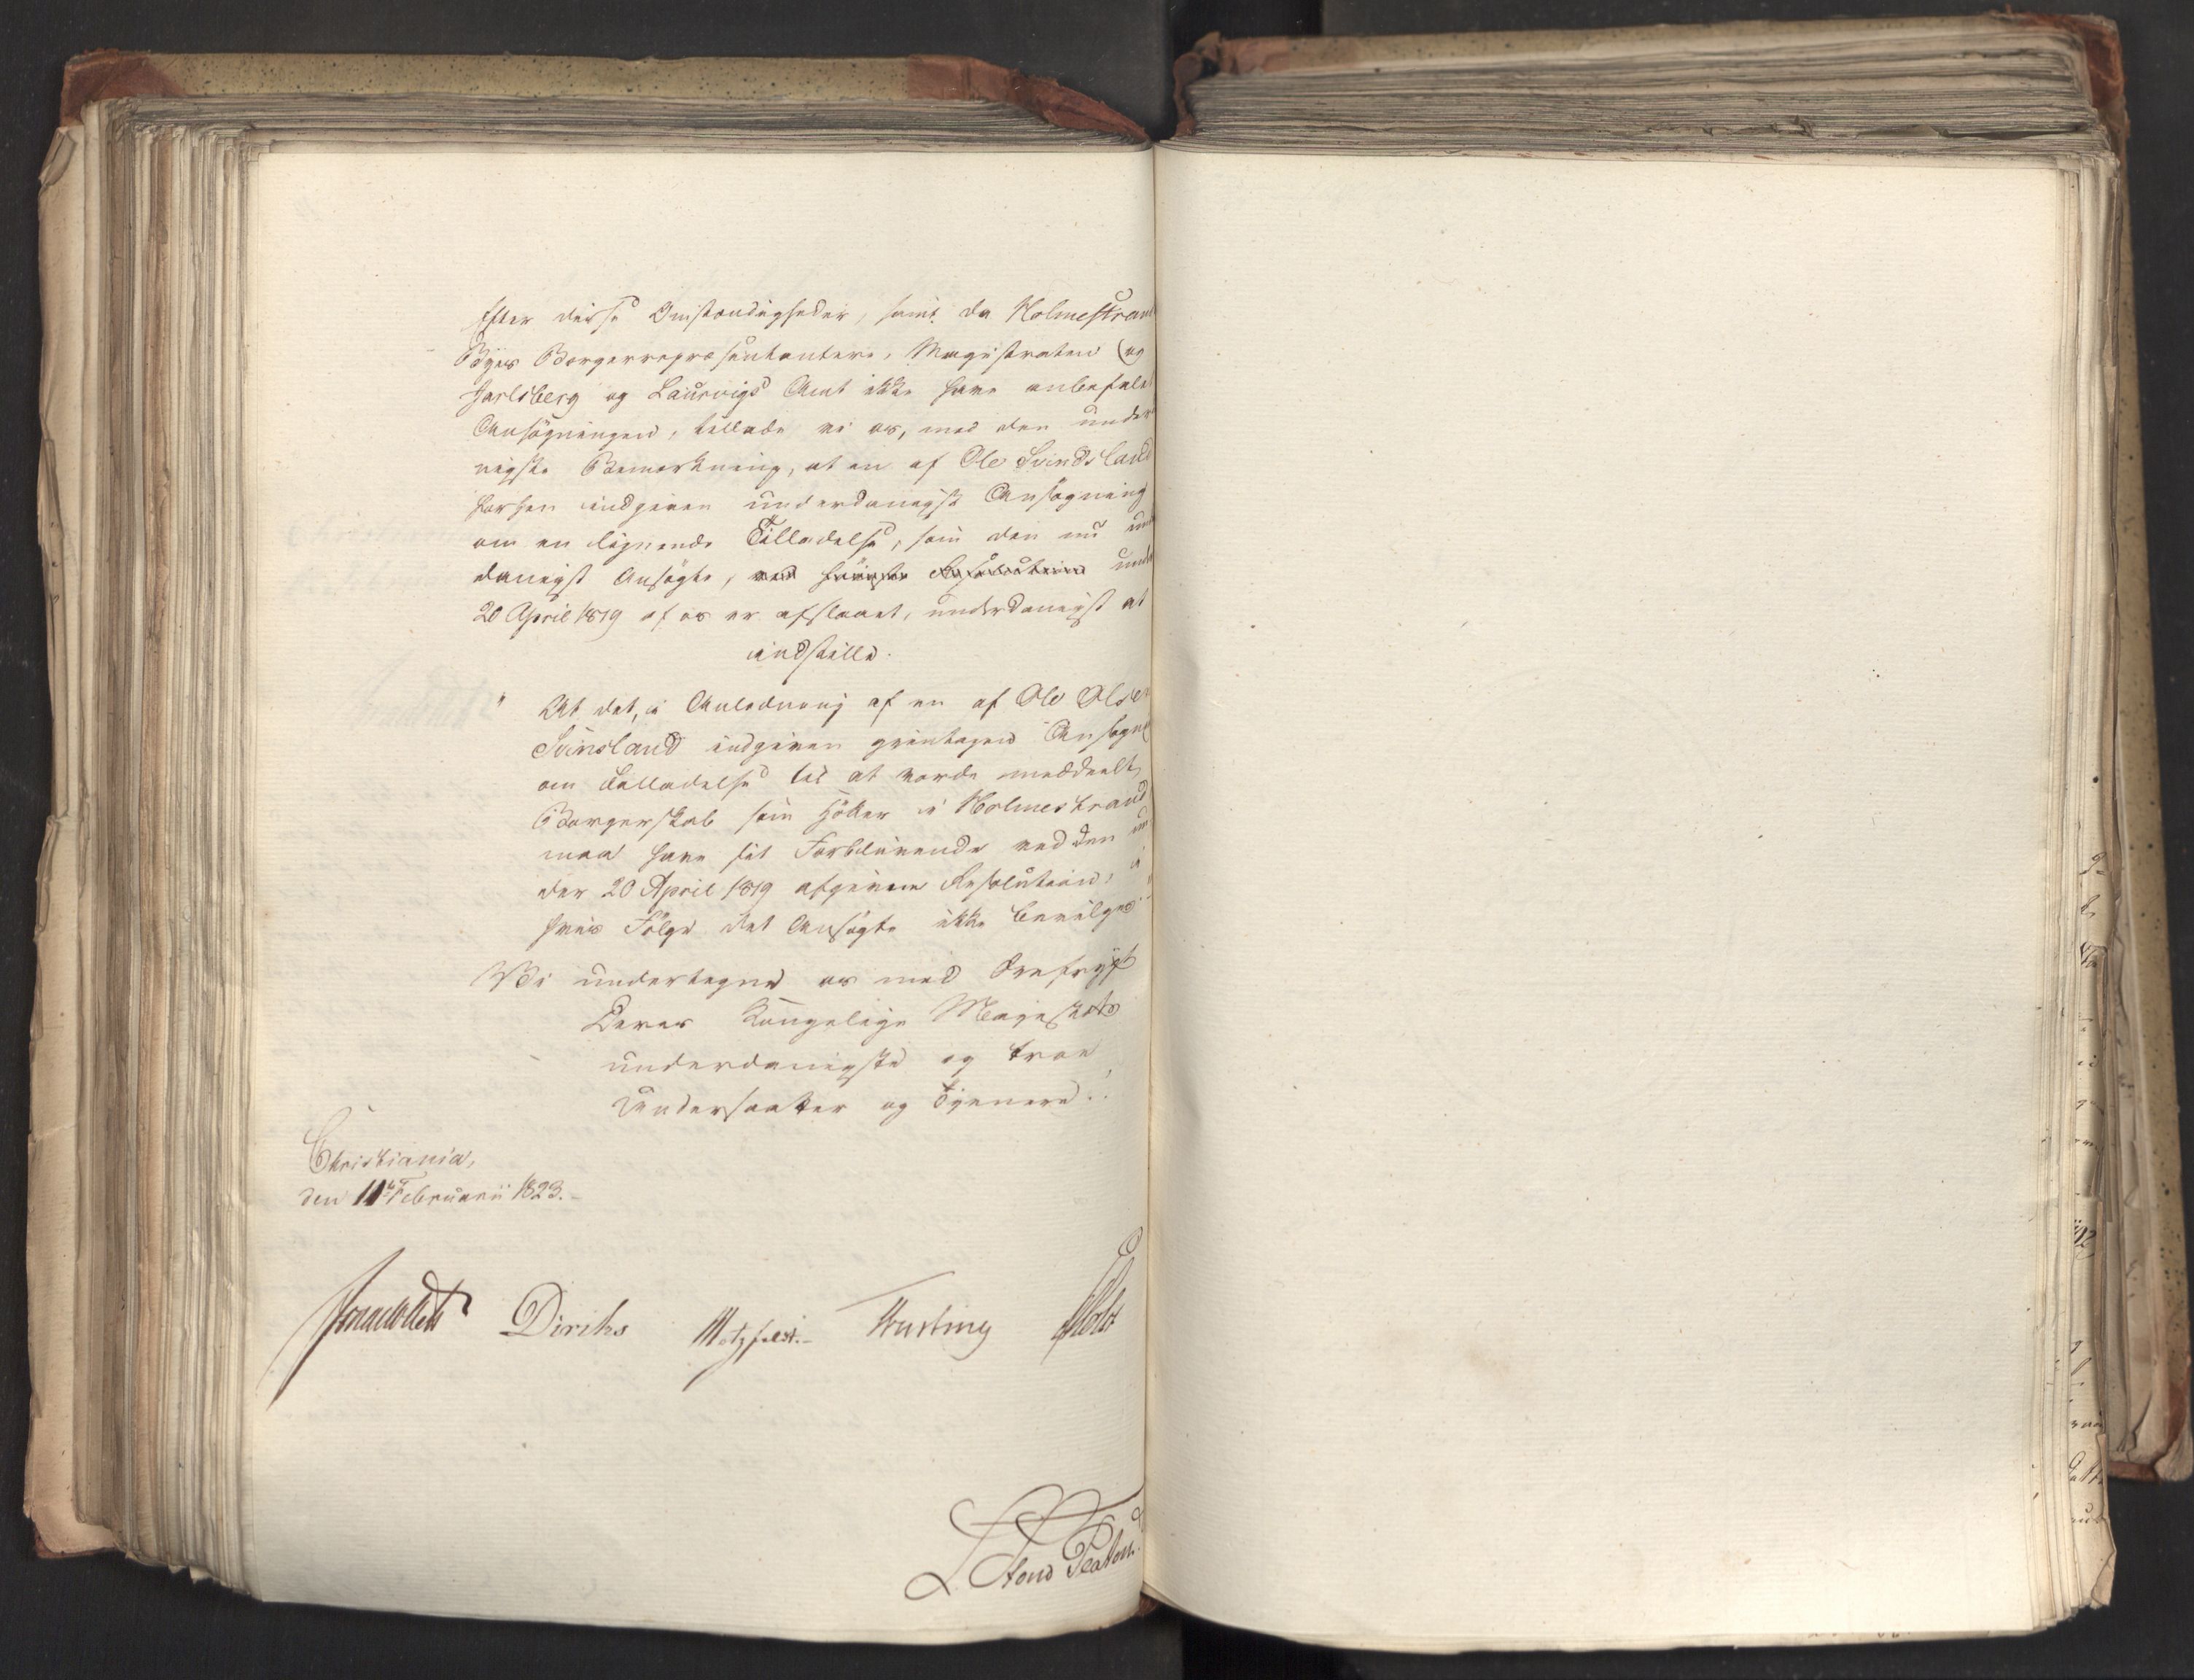 Efter disse Omstændigheder, samt da Holmestrand
Byes Borgerrepræsentantere, Magistraten og
Jarlsberg og Laurvigs Amt ikke have anbefalet
Ansøgningen, tillade vi os, med den under
nigste Bemærkning, at en af Ole Svindsland
forhen indgiven underdanigst Ansøgning
om en lignende Tilladelse, som den nu und
danigst Ansøgte, ved høieste Resolution unde
20 April 1819 af os er afslaaet, underdanigst at
indstille.
" At det, i Anledning af en af Ole Olsen
Svinsland indgiven gientagen Ansøgn
om Tilladelse til at vorde meddeelt
Borgerskab som Høker i Holmestrand
maa have sit Forblivende ved den un
der 20 April 1819 afgivne Resolution, i
hvis Følge det Ansøgte ikke bevilges"
Vi undertegne os med Ærefrygt
Deres Kongelige Majestæts
underdanigste og troe
Undersaatter og Tjenere.
Christiania,
den 11te Februarii 1823.
Diriks Motzfeldt. Krefting Holst